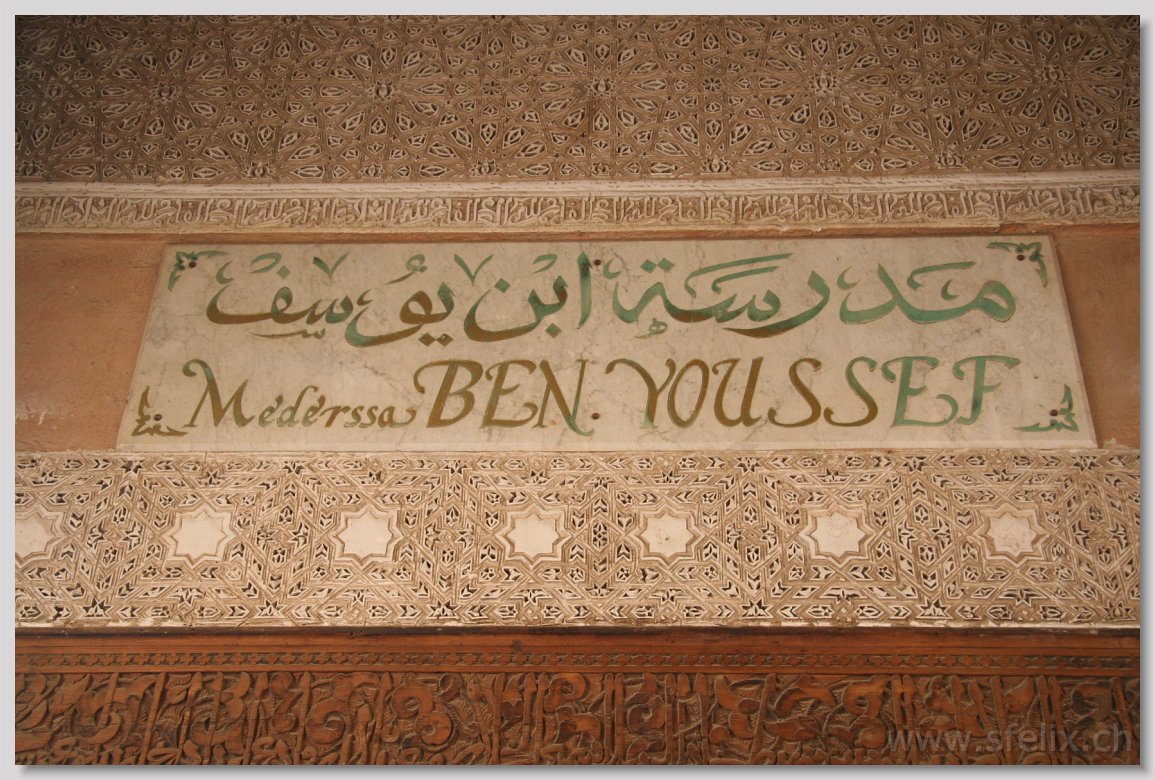 مدرسة ابن يُوسف
Médérssa BEN. YOUSSEF
www.sfelix.ch